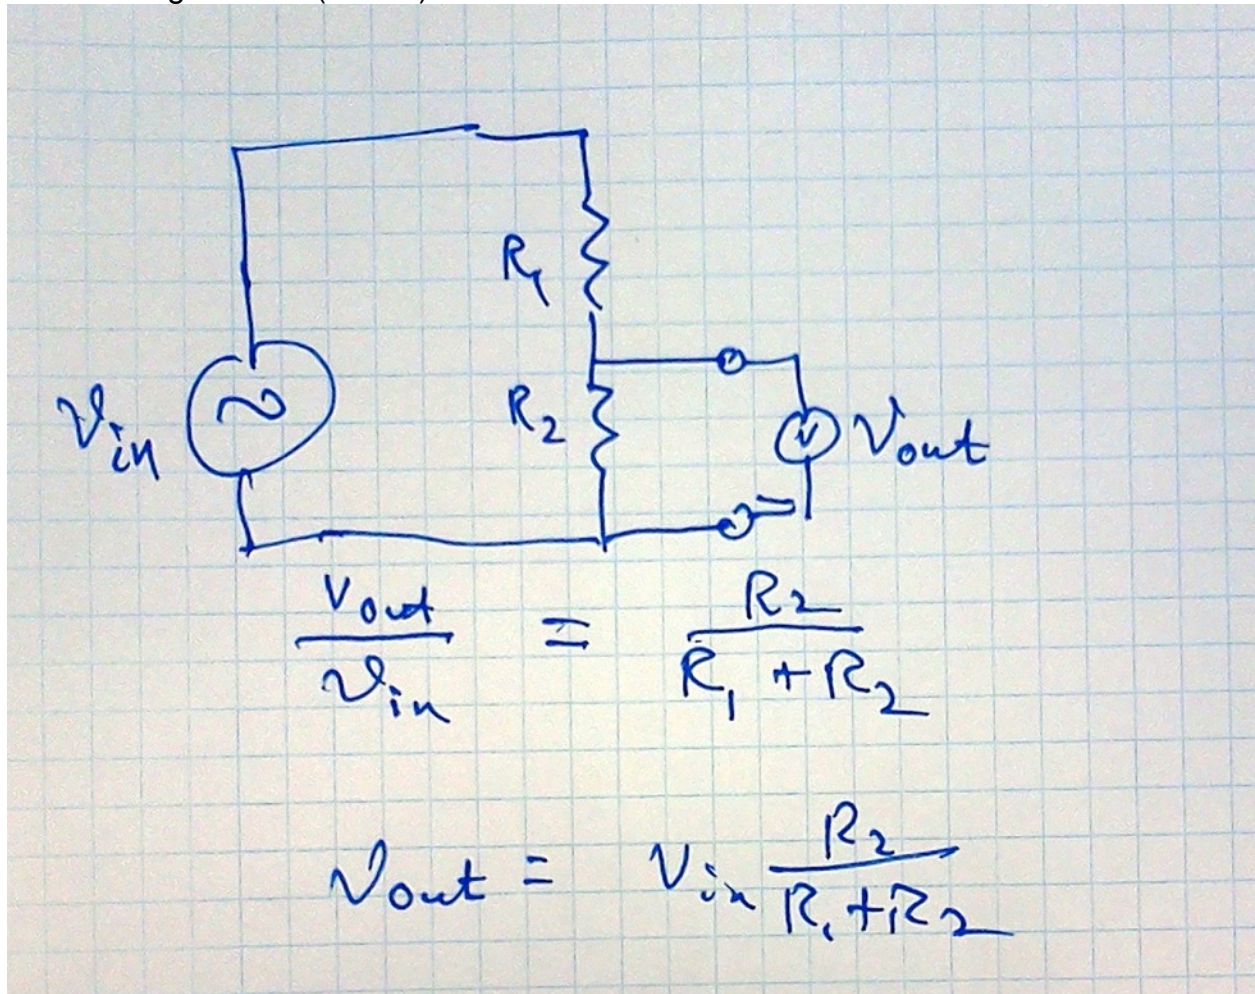 R1
R2
Vin
V
Vout
Vout / Vin = R2 / R1 + R2
Vout = Vin R2 / R1 + R2